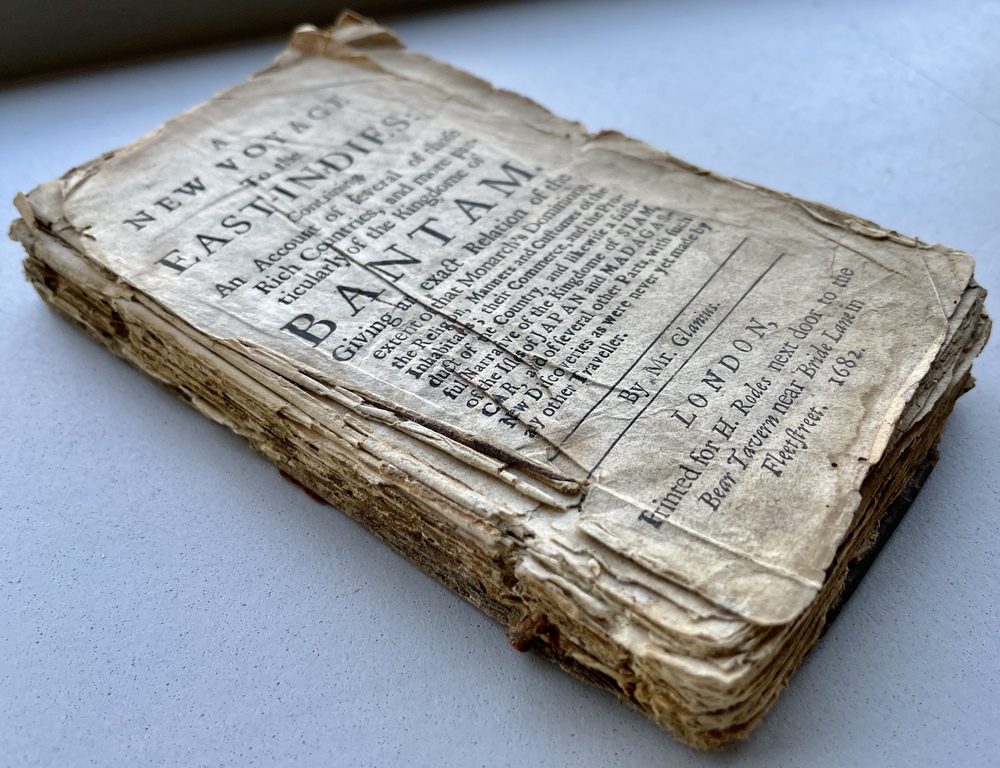 A
NEW VOYAGE
To the
EAST-INDIES:
Containing
An Account of ſeveral of thoſe
Rich Countries, and more par-
ticularly of the Kingdome of
BANTAM.
Giving an exact Relation of the
extent of that Monarch's Dominions,
the Religion, Manners and Cuſtomes of the
Inhabitants; their Commerce, and the Pro-
duct of the Country, and likewiſe a faith-
ful Narrative of the Kingdome of SIAM,
of the Iſles of JAPAN and MADAGAS-
CAR, and of ſeveral other Parts, with ſuch
New Diſcoveries as were never yet made by
any other Traveller.
By Mr. Glanius.
LONDON,
Printed for H. Rodes next door to the
Bear Tavern near Bride Lane in
Fleetſtreet. 1682.